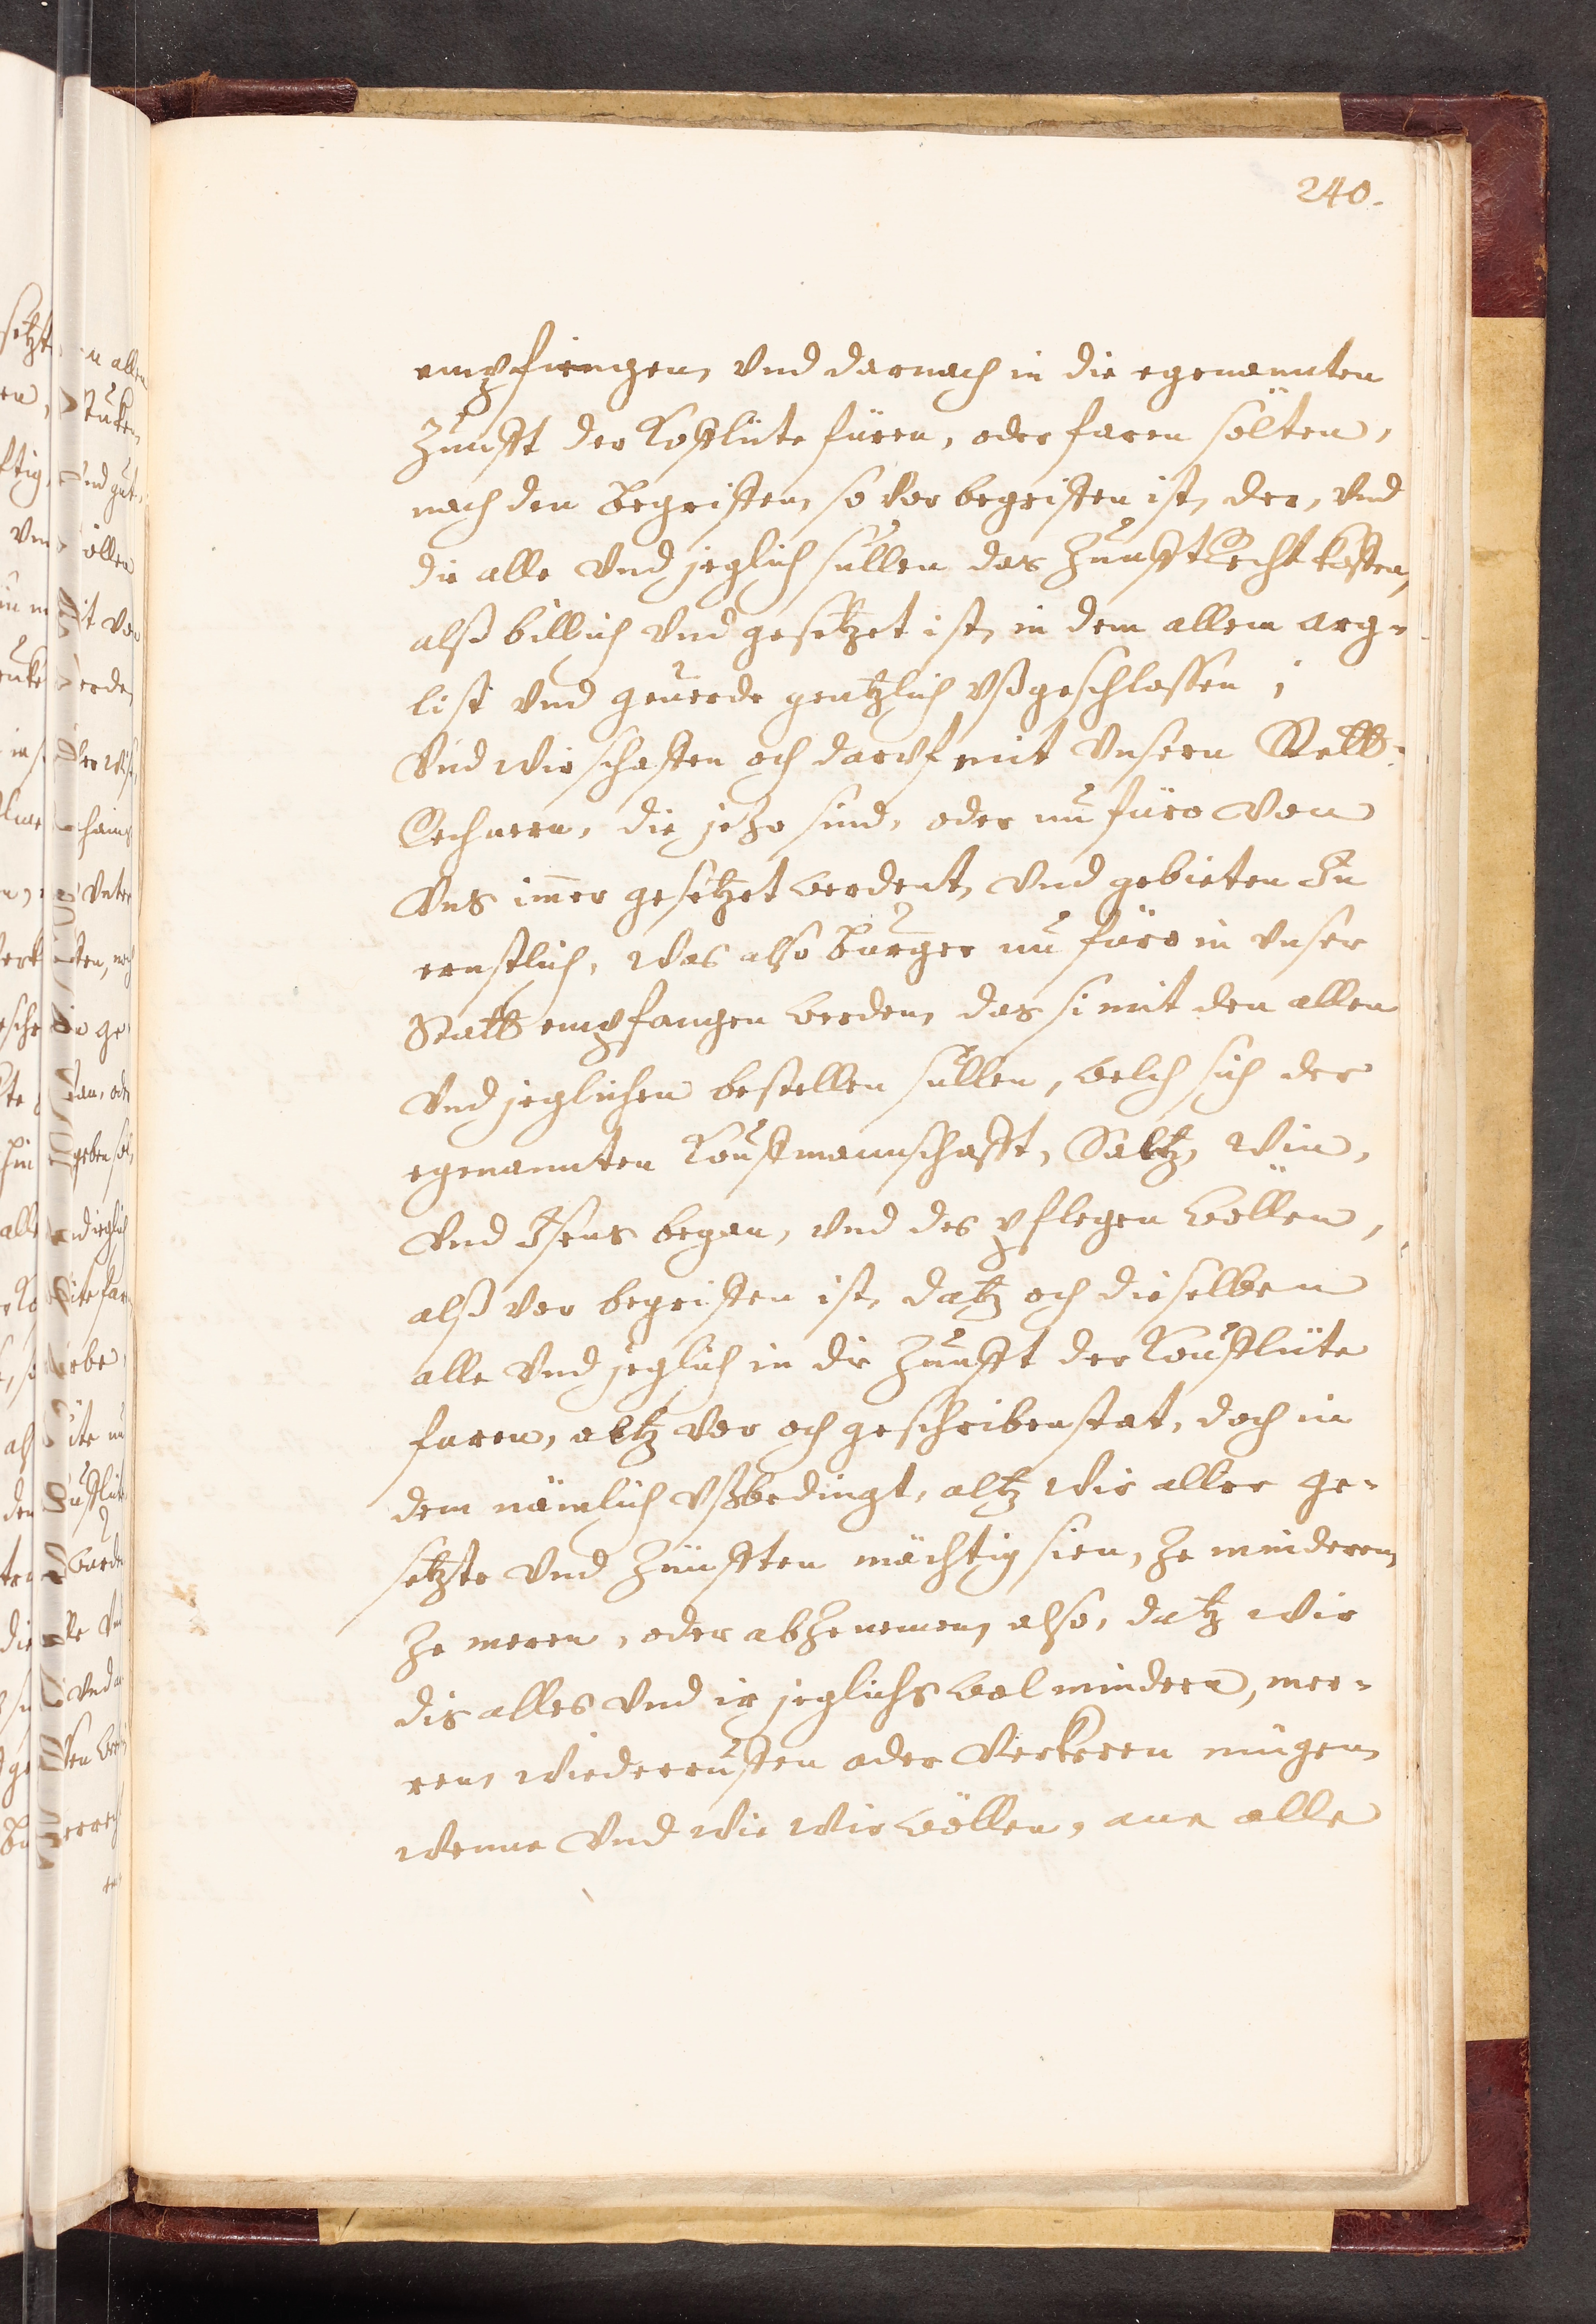 240.
empfiengen, vnd darnach in die egenannten
Zunfft der Kofflüte füren, oder faren sölten,
nach den begriffen, so vor begriffen ist, der, vnd
die alle vnd jeglich süllen das Zunfft Recht kosten,
alß billich vnd gesetzet ist, in dem allem arg-
list vnd geuerde gentzlich vßgeschlossen;
Vnd wir schaffen och daruf mit vnsern Statt-
Rechnern, die jezo sind, oder nu füro von
Vns imer gesetzet werdent, vnd gebieten In
ernstlich, was also burger nu füro in vnser
Statt empfangen werden, das si mit den allen
vnd jeglichen bestellen süllen, welch sich der
egenannten Kouffmannschafft, Saltz, Win,
vnd Isens began, vnd des pflegen wöllen,
alß vor begriffen ist, datz och dieselben
alle vnd jeglich in die Zunfft der Koufflüte
faren, altz vor och geschriben stat, doch in
dem nämlich vßbedingt, altz wir aller ge-
setzte vnd Zünfften mächtig sien, ze mindern,
ze meren, oder abzenemen, also, datz wir
dis alles vnd ir jeglichs wol mindern, mer-
ren, wiederruffen oder verkeren mügen,
wenne vnd wie wir wöllen, ane alle